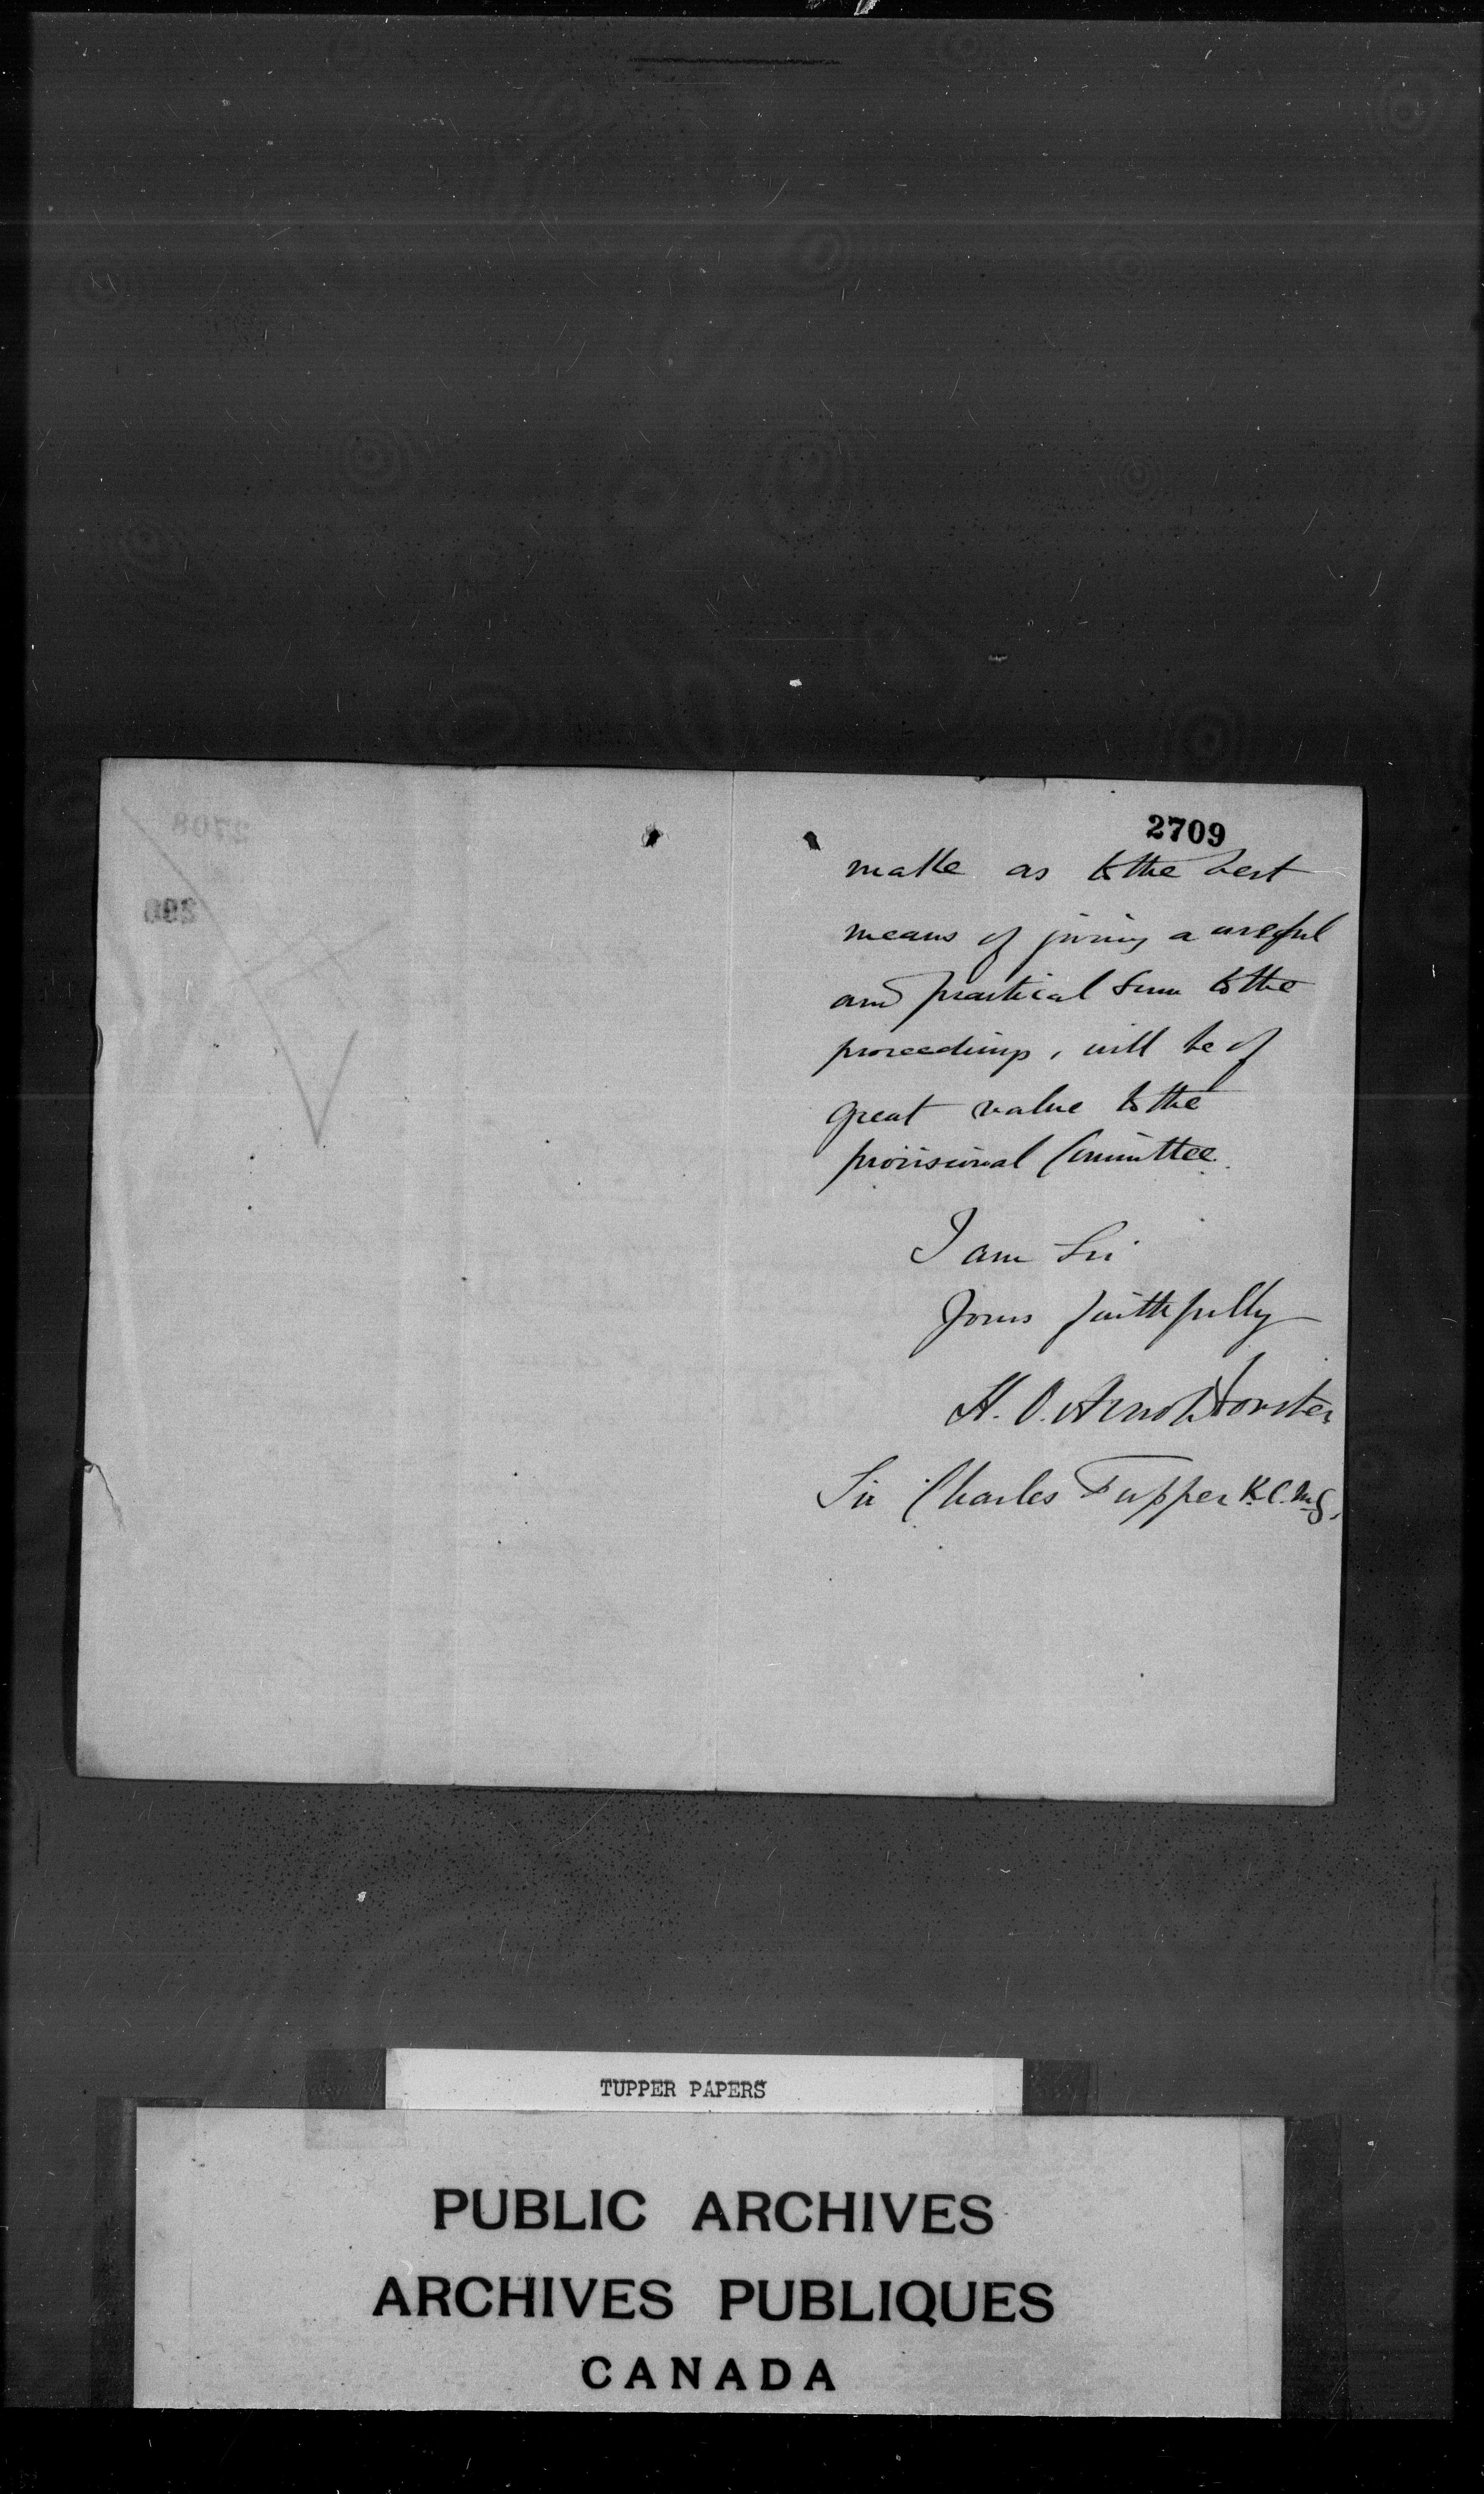 2709
make as to the best
means of giving a useful
and practical turn to the
proceedings, will be of
great value to the
provisional Committee.
I am Sir
Yours faithfully
H. O. Arnold Forster
Sir Charles Tupper K.C.M.G.
2708
TUPPER PAPERS
PUBLIC ARCHIVES
ARCHIVES PUBLIQUES
CANADA